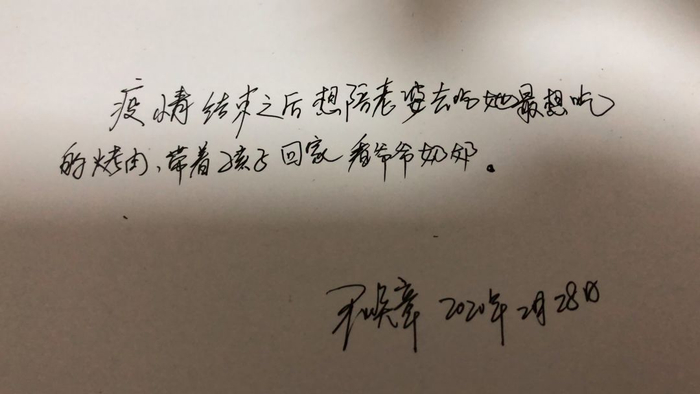 疫情结束之后想陪老婆去吃她最想吃
的烤肉,带着孩子回家看爷爷奶奶。
章 2020年2月28日